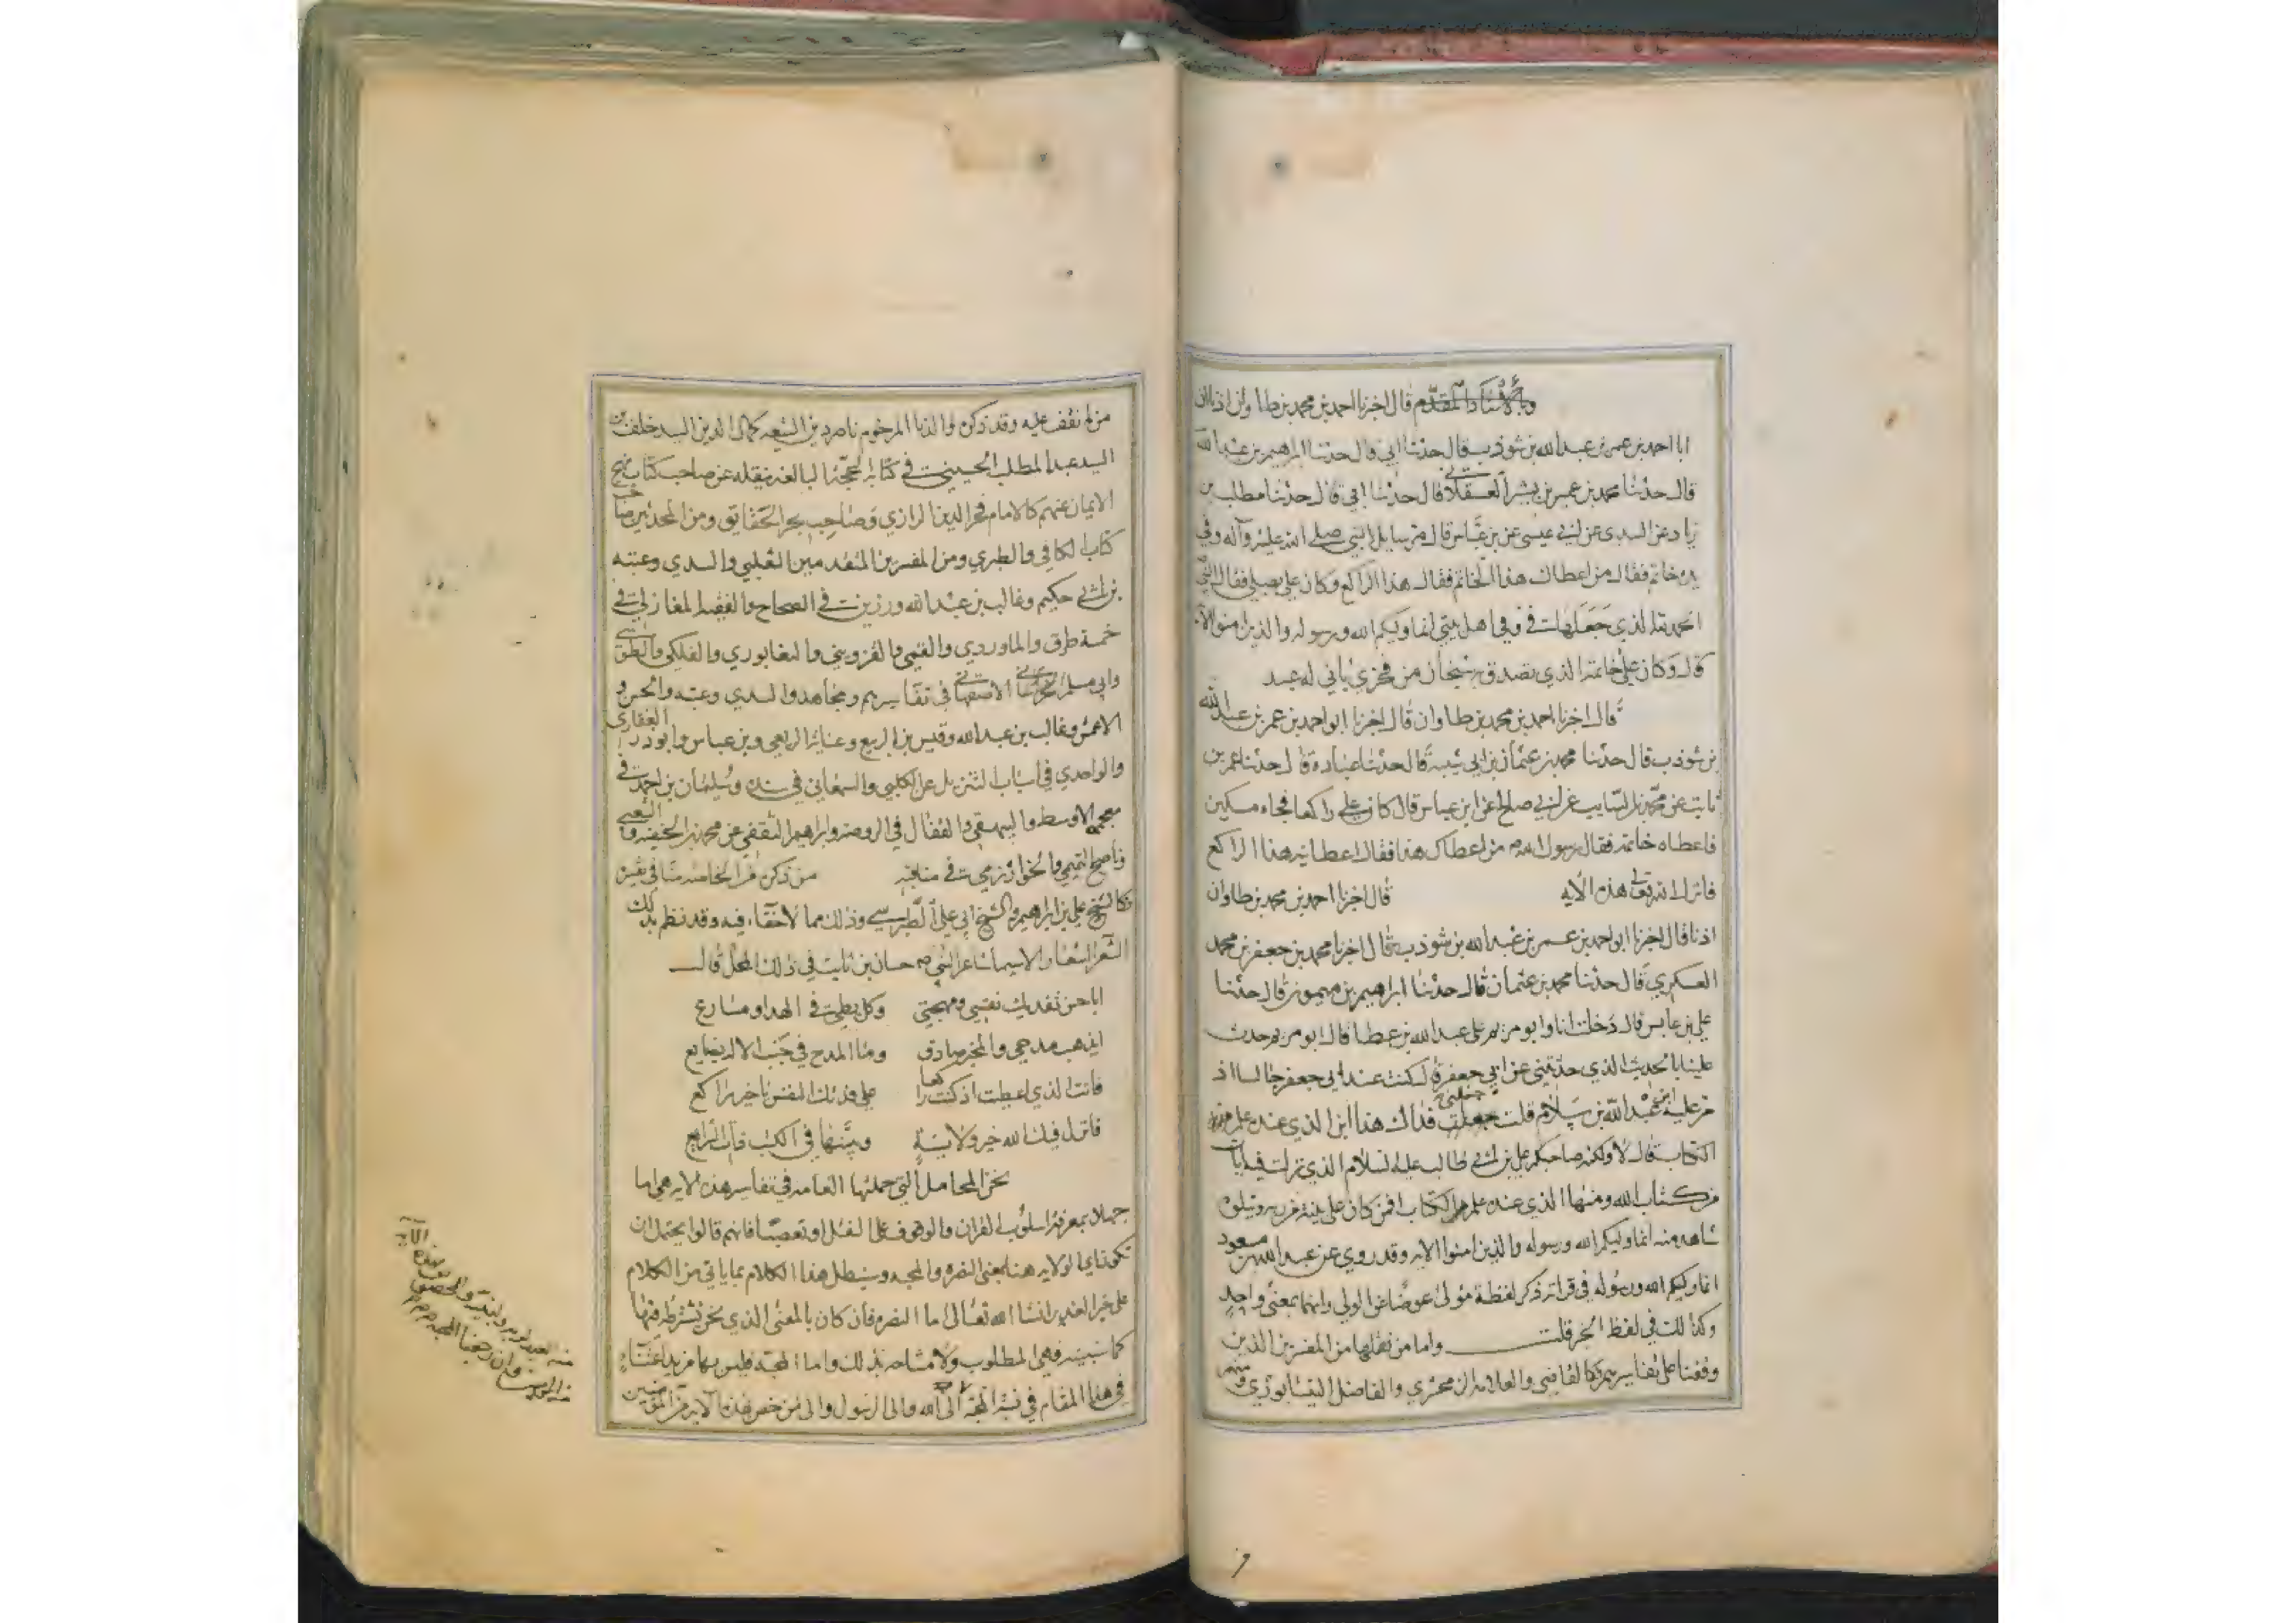 وبالأسناد المقدم قال اخبرنا احمد بن محمد بن طاوان اذنا ان
ابا احمد بن عمر بن عبد الله بن شوذب قال حدثنا ابي قال حدثنا ابراهيم بن عبد الله
قال حدثنا محمد بن عمر بن بشر العسقلاني قال حدثنا ابي قال حدثنا مطلب بن
زياد عن السدي عن ابي عيسى عن بن عباس قال مر سايل النبي صلى الله عليه وآله وفي
يده خاتم فقال من اعطاك هذا الخاتم فقال هذا الراكع وكان علي يصلي فقال النبي
الحمد لله الذي جعلها في وفي اهل بيتي انما وليكم الله ورسوله والذين امنوا الآية
قال وكان على خاتمه الذي تصدق به سبحان من فخري باني له عبد
قال اخبرنا احمد بن محمد بن طاوان قال اخبرنا ابو احمد بن عمر بن عبد الله
بن شوذب قال حدثنا محمد بن عثمان بن ابي شيبة قال حدثنا عبادة قال حدثنا عمر بن
ثابت عن محمد بن السايب عن ابي صالح عن ابن عباس قال كان علي راكعا فجاء مسكين
فاعطاه خاتمه فقال رسول الله ص من اعطاك هذا فقال اعطانيه هذا الراكع
فانزل الله تعالى هذه الايه قال اخبرنا احمد بن محمد بن طاوان
اذنا قال اخبرنا ابو احمد بن عمر بن عبد الله بن شوذب قال اخبرنا محمد بن جعفر بن محمد
العسكري قال حدثنا محمد بن عثمان قال حدثنا ابراهيم بن ميمون قال حدثنا
علي بن عابس قال دخلت انا وابو مريم على عبد الله بن عطا قال ابو مريم حدث
علينا بالحديث الذي حدثتني عن ابي جعفر قال كنت عند ابي جعفر جالسا اذ
مر عليه ابن عبد الله بن سلام قلت جعلني فداك هذا ابن الذي عنده علم من
الكتاب قال لا ولكنه صاحبكم علي بن ابي طالب عليه السلام الذي نزلت فيه ايات
من كتاب الله ومنها الذي عنده علم من الكتاب افمن كان على بينة من ربه ويتلوه
شاهد منه انما وليكم الله ورسوله والذين امنوا الايه وقد روي عن عبد الله بن مسعود
انما وليكم الله ورسوله في قراته ذكر لفظة مولى عوضا عن الولي وانهما بمعنى واحد
وكذا لك في لفظ الخبر قلت واما من نقلها من المفسرين الذين
وقفنا على تفاسيرهم كالقاضي والعلامه الزمخشري والفاضل النيشابوري ومنهم
من لم نقف عليه وقد ذكره والدنا المرحوم ناصر دين الشيعه كمال الدين السيد خلف بن
السيد عبد المطلب الحسيني في كتابه الحجة البالغه بنقله عن صاحب كتاب نهج
الايمان عنهم كالامام فخر الدين الرازي وصاحب بحر الحقايق ومن المحدثين صاحب
كتاب الكافي والطبري ومن المفسرين المتقدمين الثعلبي والسدي وعتبه
بن ابي حكيم وغالب بن عبد الله ورزين في الصحاح والفقيه المغازلي في
خمسة طرق والماوردي والقمي والقزويني والنيشابوري والفلكي والطوسي
وابي مسلم الاصفهاني في تفاسيرهم ومجاهد والسدي وعتبه والحسن و
الاعمش وغالب بن عبد الله وقيس بن الربيع وعباية الربعي وبن عباس وابو ذر الغفاري
والواحدي في اسباب التنزيل عن الكلبي والسمعاني في سنده وسليمان بن احمد في
معجمه الاوسط والبيهقي والقفال في الروضه وابراهيم الثقفي عن محمد بن الحنفيه والشعبي
وناصح التميمي والخوارزمي في مناقبه من ذكره من الخاصه منا في تفسيره
فكالشيخ علي بن ابراهيم والشيخ ابي علي الطبرسي وذلك مما لا خفاء فيه وقد نظم بذلك
الشعرا اشعارا لاسيما شاعر النبي ص حسان بن ثابت في ذلك المحل قال
ابا حسن تفديك نفسي ومهجتي وكل بطيء في الهدا ومسارع
ايذهب مدحي والمحبر صادق وما المدح في جنب الاله بضايع
فانت الذي اعطيت اذ كنت راكعا علي فدتك النفس يا خير راكع
فانزل فيك الله خير ولاية وبينها في الكتب
نحن المحامل التي حملتها العامه في تفاسير هذه الايه هي اما
جهلا بمعرفة اسلوب القران والوقوف على النقل او تعصبا فانهم قالوا يحتمل ان
تكون اي الولايه هنا بمعنى النصره والمحبه وسنبطل هذا الكلام بما ياتي من الكلام
على خبر الغدير انشا الله تعالى اما النصره فان كان بالمعنى الذي نحن نشترطه فيها
كما سنبينه فهي المطلوب ولا مشاحه بذلك واما المحبه فليس بها مزيد اعتناء
في هذا المقام في نسبة المحبه الى الله والى الرسول والى من خص بهذه الايه من المؤمنين